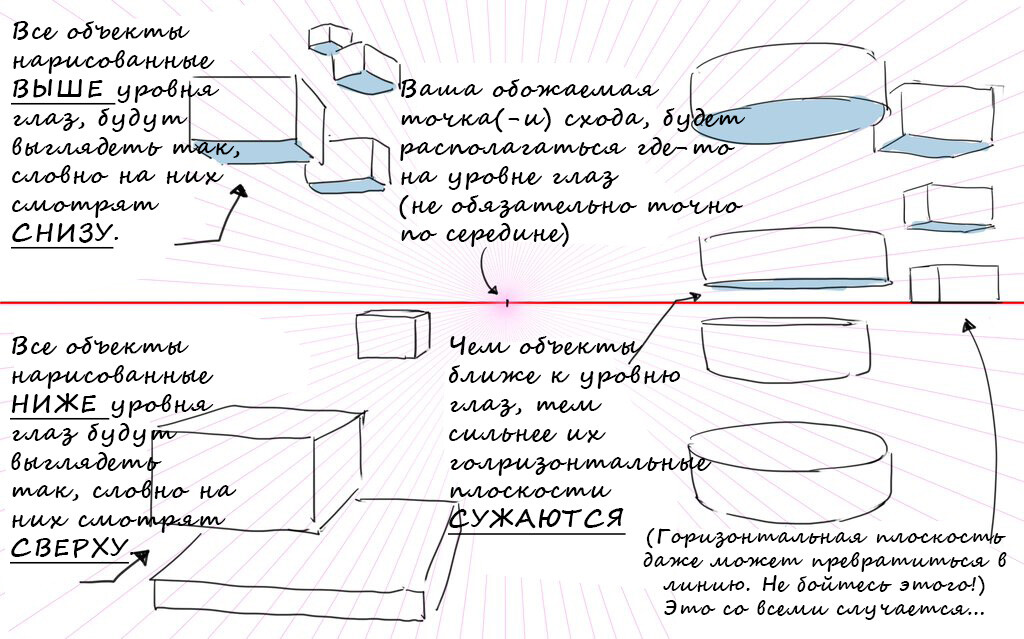 Все объекты
нарисованные
ВЫШЕ уровня
глаз, будут
выглядеть так,
словно на них
смотрят
СНИЗУ.
Ваша обожаемая
точка(-и) схода, будет
располагаться где-то
на уровне глаз
(не обязательно точно
по середине)
Все объекты
нарисованные
НИЖЕ уровня
глаз будут
выглядеть
так, словно на
них смотрят
СВЕРХУ.
Чем объекты
ближе к уровню
глаз, тем
сильнее их
голризонтальные
плоскости
СУЖАЮТСЯ
(Горизонтальная плоскость
даже может превратиться в
линию. Не бойтесь этого!)
Это со всеми случается...